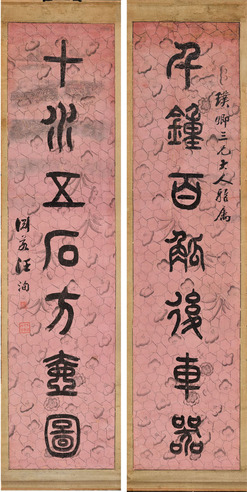 千鐘百觚後車器
璞卿三兄大人雅屬
十水五石方壺圖
淵若汪洵